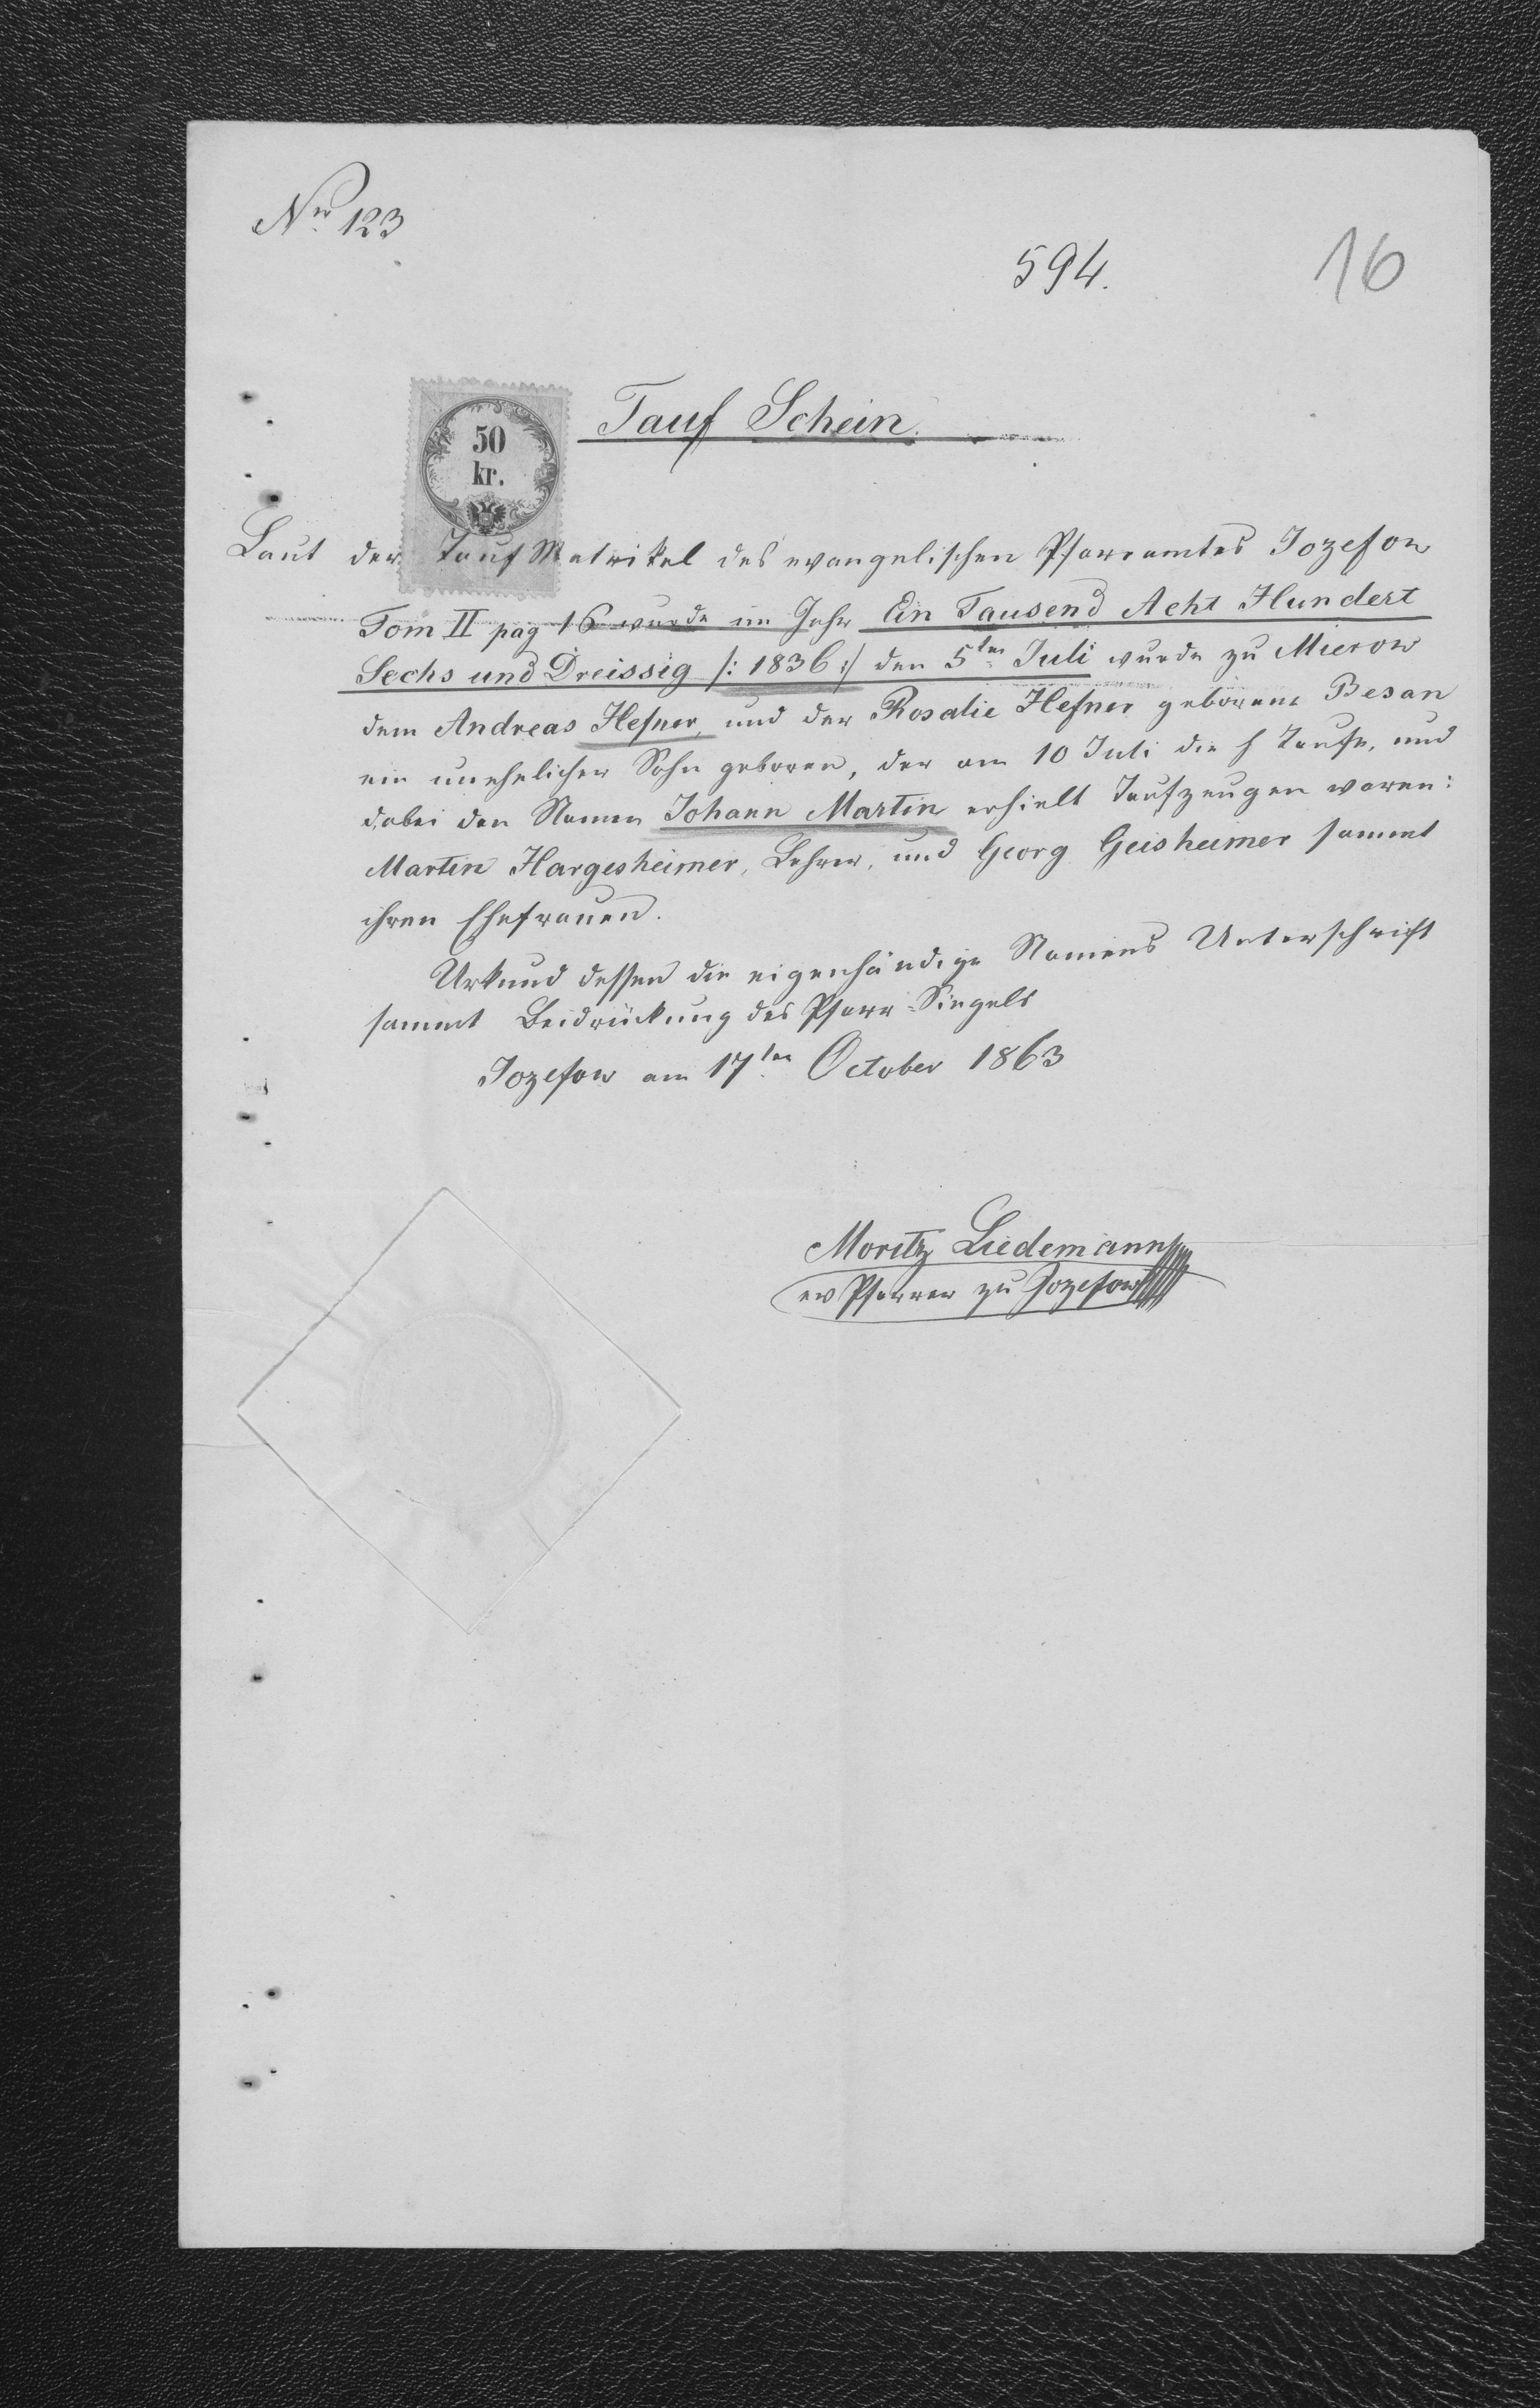 Nro 123
594.
16
50
kr.
Tauf Schein.
Laut der Tauf Matrikel des evangelischen Pfarramtes Jozefow
Tom II pag 16 wurde im Jahr Ein Tausend Acht Hundert
Sechs und Dreissig /: 1836 :/ den 5ten Juli wurde zu Mierow
dem Andreas Hefner, und der Rosalie Hefner geborene Besan
ein unehelicher Sohn geboren, der am 10 Juli die h Taufe, und
dabei den Namen Johann Martin erhielt Taufzeugen waren:
Martin Hargesheimer, Lehrer, und Georg Geisheimer sammt
ihren Ehefrauen.
Urkund dessen die eigenhändige Namens Unterschrift
sammt Beidrückung des Pfarr-Siegels
Jozefow am 17ten October 1863
Moritz Liedemann
ev Pfarrer zu Jozefow